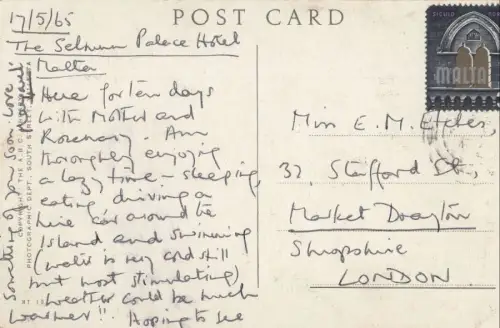 17/5/65
POST CARD
The Selmun Palace Hotel
Malta
Here for ten days
with Mother and
Rosemary. Am
thoroughly enjoying
a lazy time - sleeping,
eating driving a
hire car around the
Island and swimming
(water is very cold still
but most stimulating)
weather could be much
warmer!! Hoping to see
Something of you soon. Love
COPYRIGHT THE A.B.C.
PHOTOGRAPHIC DEPT. SOUTH STREET
malta
Miss E. M.
32, Stafford St.,
Market Drayton
Shropshire
LONDON.